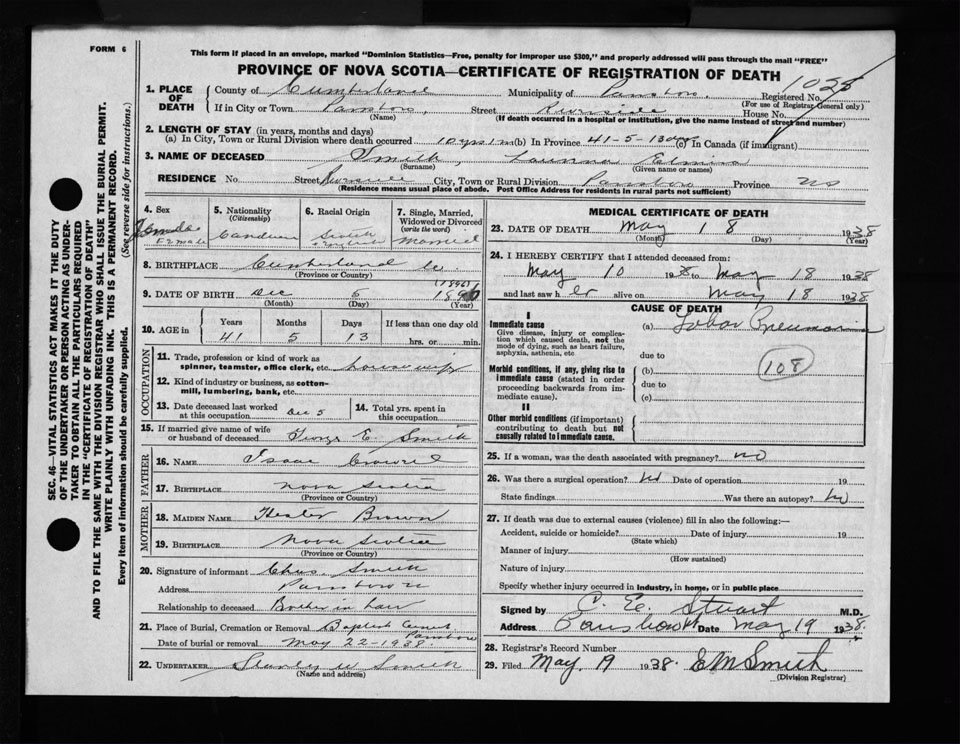 FORM 6
This form if placed in an envelope, marked "Dominion Statistics—Free, penalty for improper use $300," and properly addressed will pass through the mail "FREE"
PROVINCE OF NOVA SCOTIA—CERTIFICATE OF REGISTRATION OF DEATH
SEC. 46—VITAL STATISTICS ACT MAKES IT THE DUTY
OF THE UNDERTAKER OR PERSON ACTING AS UNDER-
TAKER TO OBTAIN ALL THE PARTICULARS REQUIRED
IN THE "CERTIFICATE OF REGISTRATION OF DEATH"
AND TO FILE THE SAME WITH THE DIVISION REGISTRAR WHO SHALL ISSUE THE BURIAL PERMIT.
WRITE PLAINLY WITH UNFADING INK. THIS IS A PERMANENT RECORD.
Every item of information should be carefully supplied. (See reverse side for instructions.)
1. PLACE OF DEATH County of Cumberland Municipality of Parrsboro. Registered No. 1025
(For use of Registrar General only)
If in City or Town Parrsboro Street Riverside House No.
(Name) (If death occurred in a hospital or institution, give the name instead of street and number)
2. LENGTH OF STAY (in years, months and days)
(a) In City, Town or Rural Division where death occurred 10 yrs 1 m (b) In Province 41-5-13 days (c) In Canada (if immigrant)
3. NAME OF DECEASED Smith, Laurina Elmira
(Surname) (Given name or names)
RESIDENCE No. Street Riverside City, Town or Rural Division Parrsboro Province NS
(Residence means usual place of abode. Post Office Address for residents in rural parts not sufficient)
4. Sex Female Female
5. Nationality (Citizenship) Canadian
6. Racial Origin Scotch &
7. Single, Married, Widowed or Divorced (write the word) Married
8. BIRTHPLACE Cumberland Co.
(Province or Country)
9. DATE OF BIRTH Dec 5 (1896)
(Month) (Day) (Year)
10. AGE in Years 41 Months 5 Days 13 If less than one day old hrs. or min.
OCCUPATION
11. Trade, profession or kind of work as spinner, teamster, office clerk, etc. housewife
12. Kind of industry or business, as cotton-mill, lumbering, bank, etc.
13. Date deceased last worked at this occupation Dec 5
14. Total yrs. spent in this occupation
15. If married give name of wife or husband of deceased George E. Smith
FATHER
16. NAME Isaac
17. BIRTHPLACE Nova Scotia
(Province or Country)
MOTHER
18. MAIDEN NAME Hester Brown
19. BIRTHPLACE Nova Scotia
(Province or Country)
20. Signature of informant Chas. Smith
Address Parrsboro
Relationship to deceased Brother in law
21. Place of Burial, Cremation or Removal Baptist Cemet Parrsboro
Date of burial or removal May 22-1938
22. UNDERTAKER Stanly W Smith
(Name and address)
MEDICAL CERTIFICATE OF DEATH
23. DATE OF DEATH May 18 1938
(Month) (Day) (Year)
24. I HEREBY CERTIFY that I attended deceased from:
May 10 1938 to May 18 1938
and last saw her alive on May 18 1938
CAUSE OF DEATH
I
Immediate cause
Give disease, injury or complication which caused death, not the mode of dying, such as heart failure, asphyxia, asthenia, etc
(a) Lobar Pneumonia
due to
Morbid conditions, if any, giving rise to immediate cause (stated in order proceeding backwards from immediate cause).
(b) 108
due to
(c)
II
Other morbid conditions (if important) contributing to death but not causally related to immediate cause.
25. If a woman, was the death associated with pregnancy? no
26. Was there a surgical operation? No Date of operation 19
State findings Was there an autopsy? No
27. If death was due to external causes (violence) fill in also the following:—
Accident, suicide or homicide? Date of injury 19
(State which)
Manner of injury
(How sustained)
Nature of injury
Specify whether injury occurred in industry, in home, or in public place
Signed by C. E. Stuart M.D.
Address Parrsboro Date May 19 1938.
28. Registrar's Record Number
29. Filed May 19 1938. E M Smith
(Division Registrar)